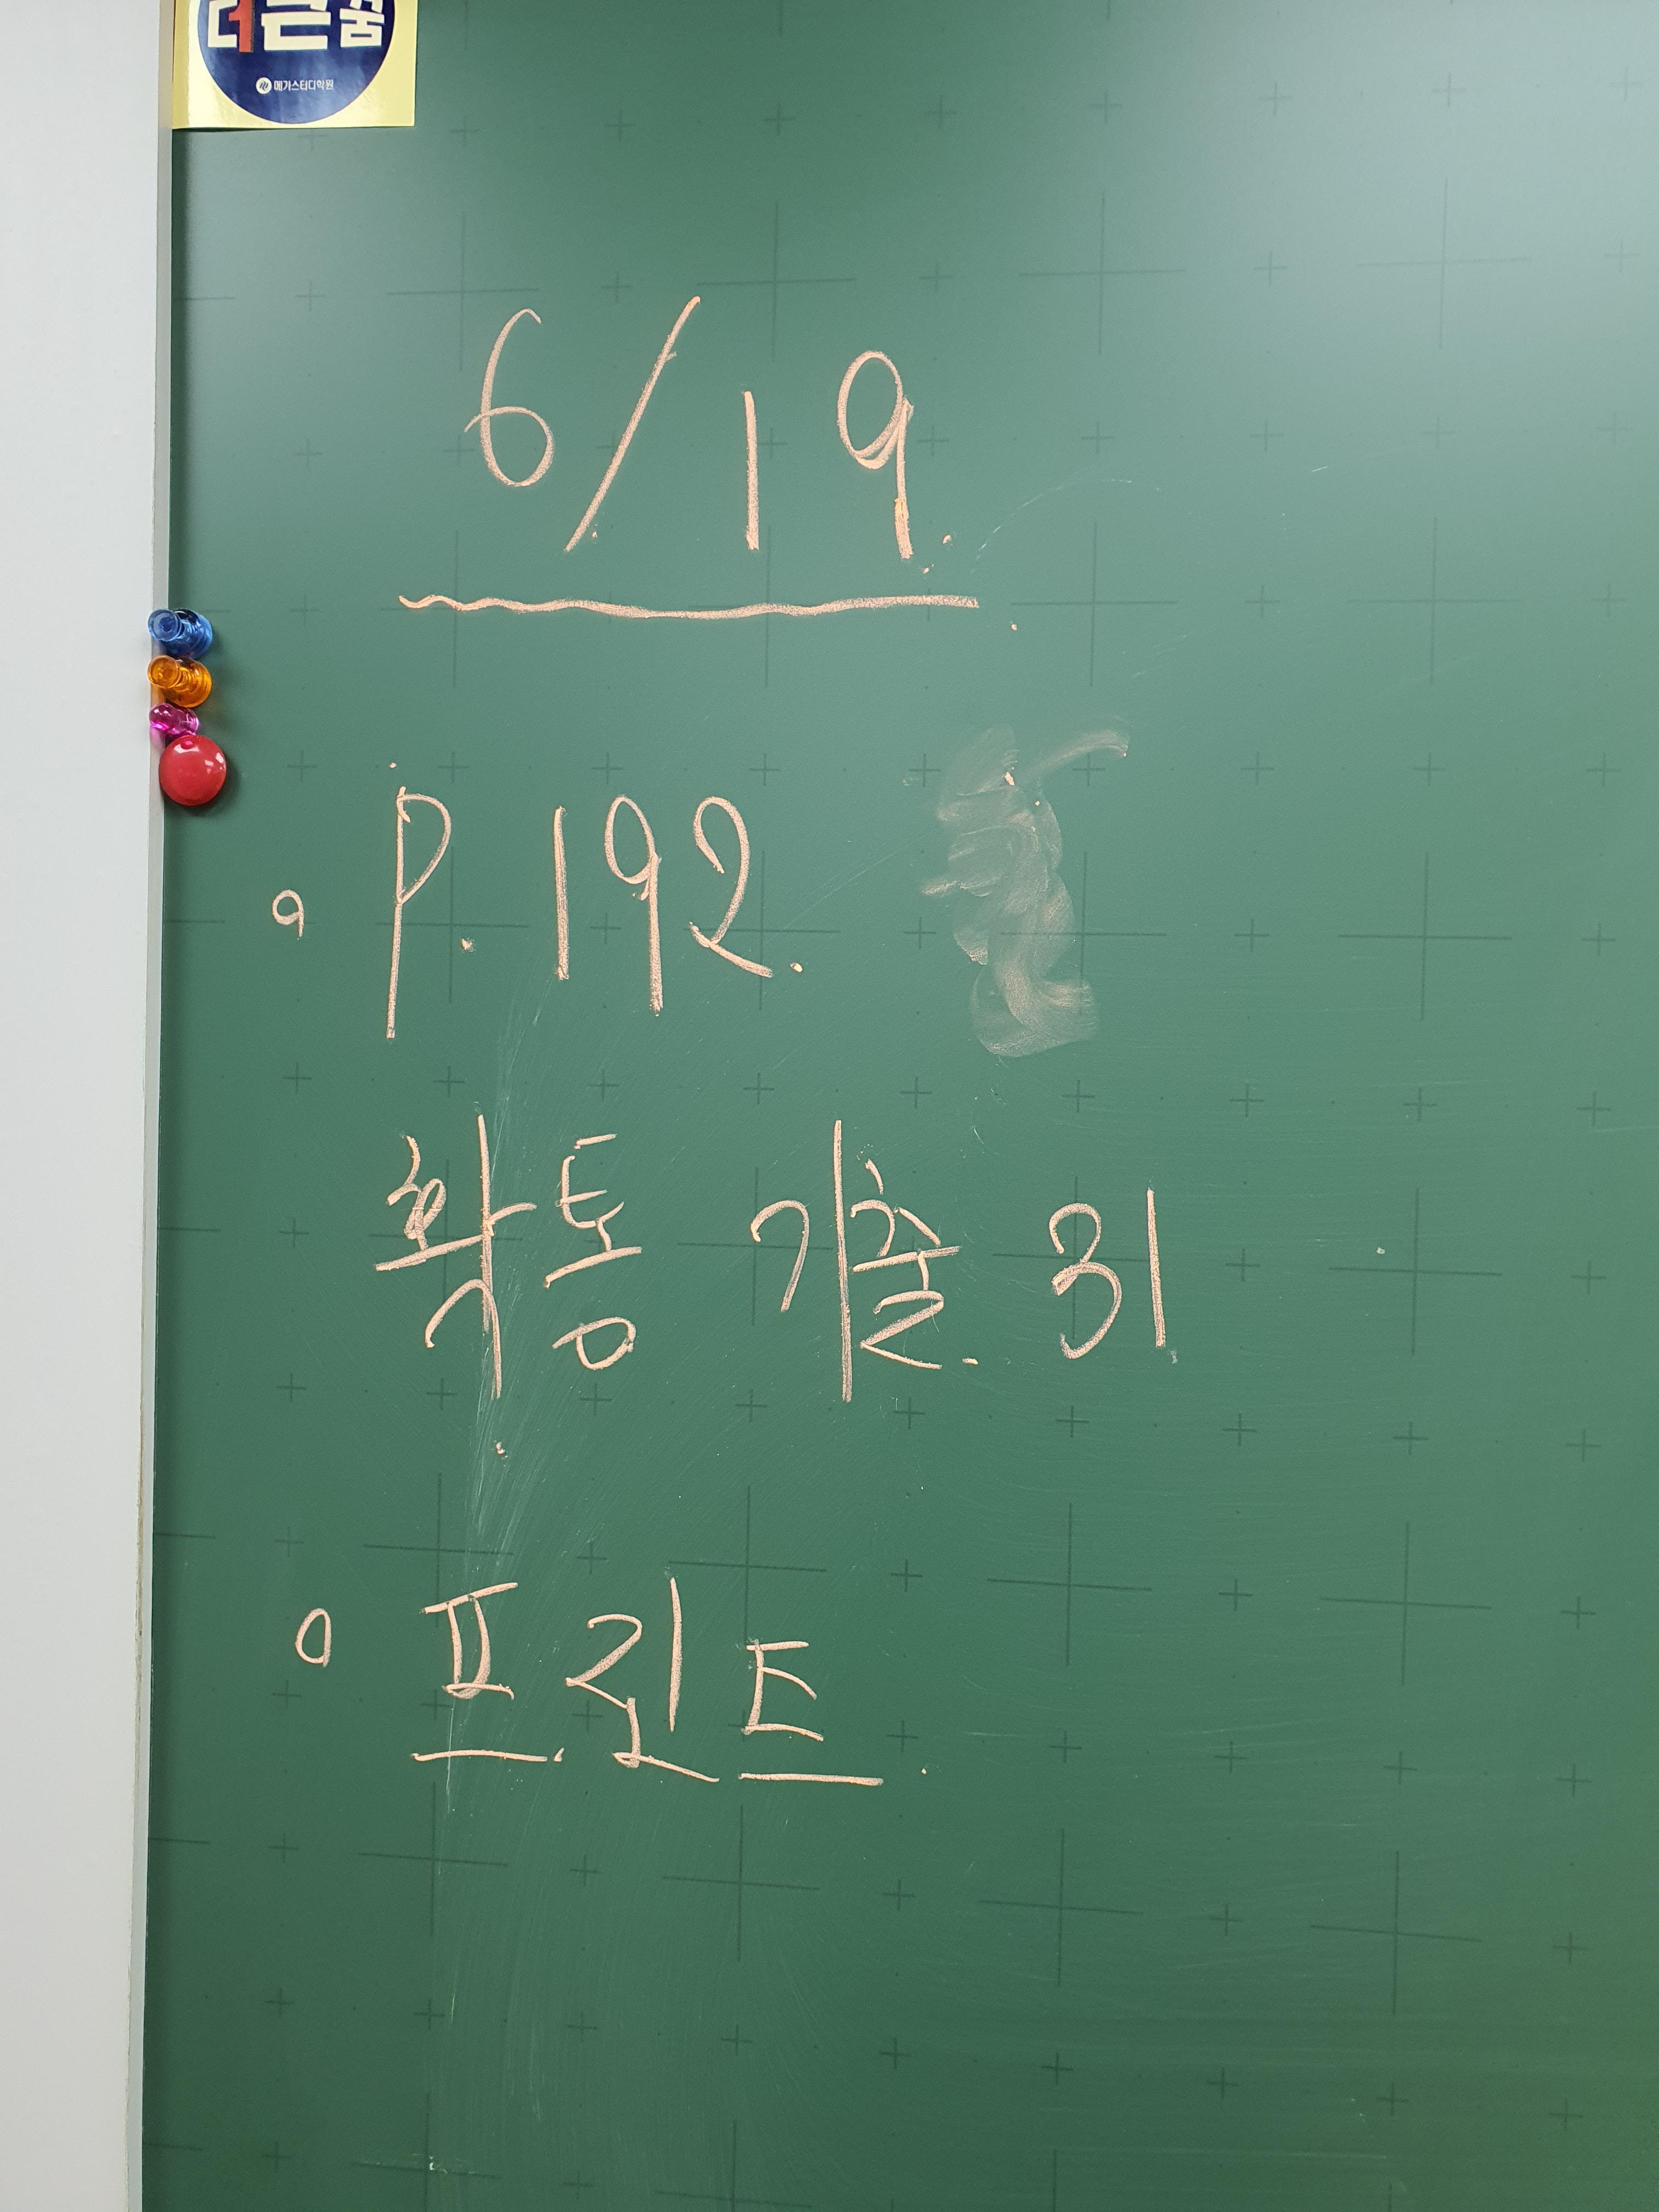 더큰꿈
메가스터디학원
6/19.
P. 192.
확통 기출. 31
프린트